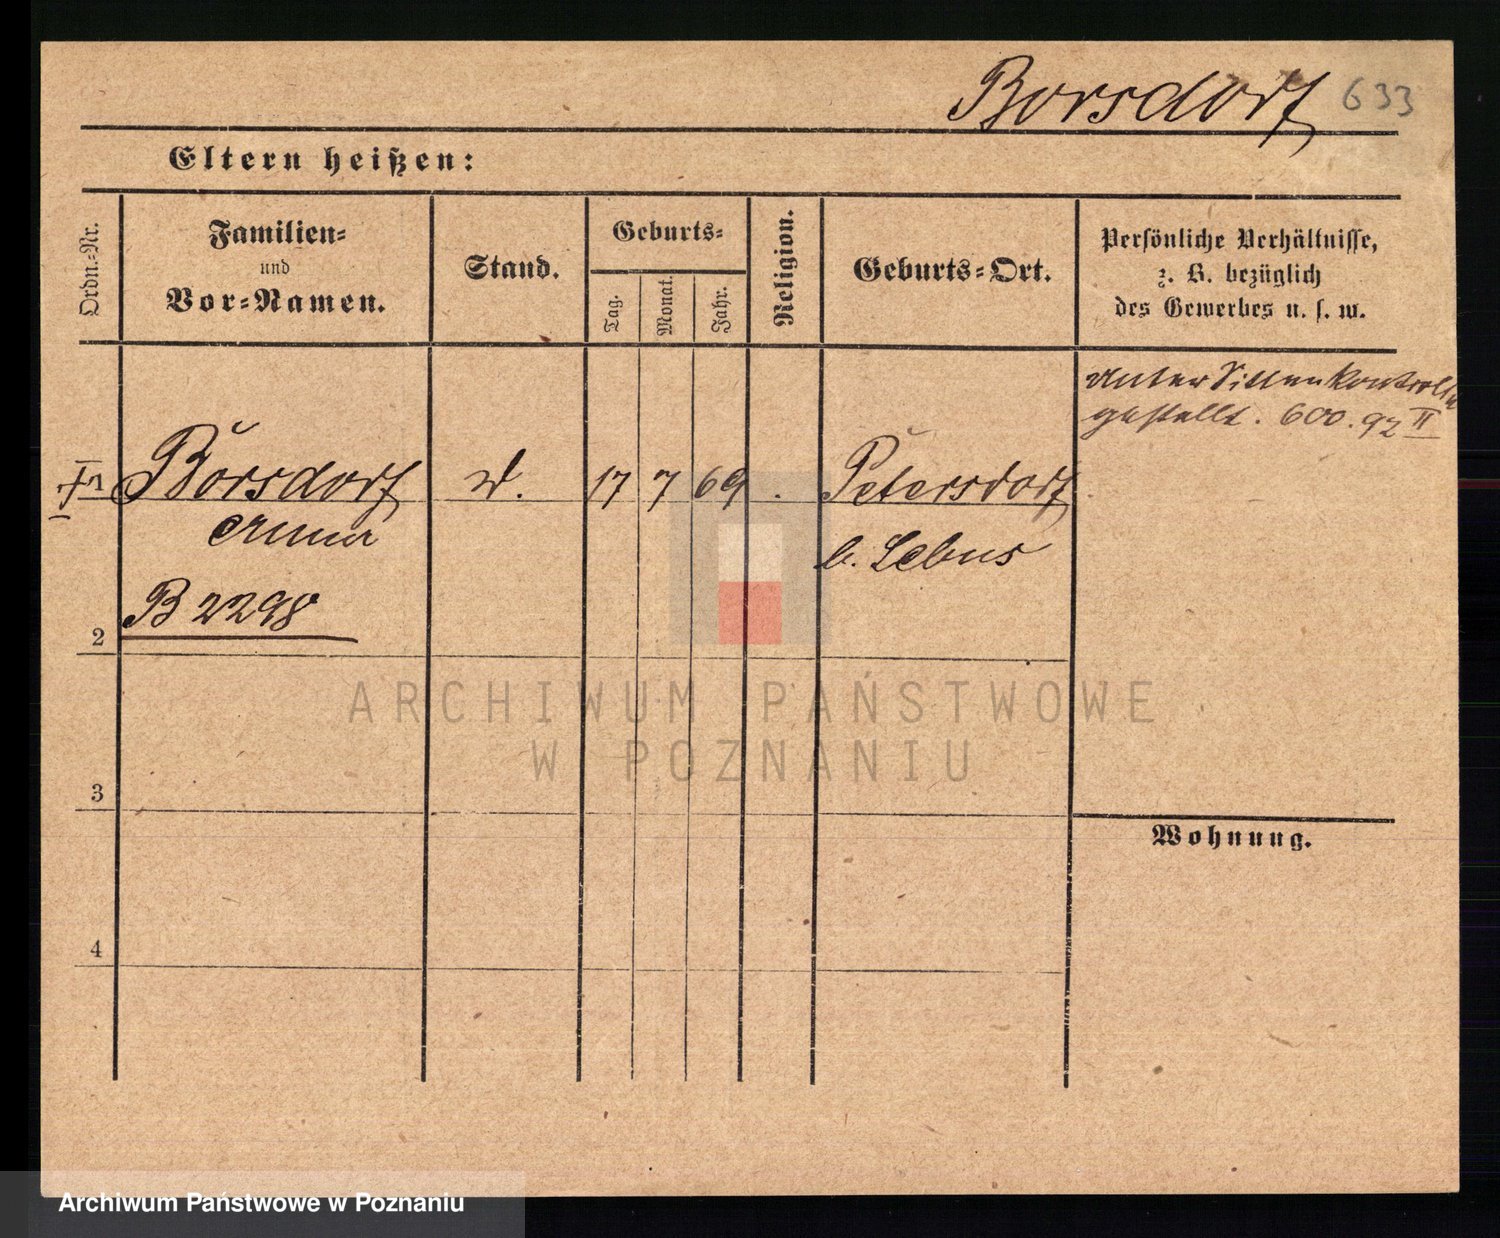 Borsdorf 633
Eltern heißen:
Ordn.-Nr.
Familien-
und
Vor-Namen.
Stand.
Geburts-
Tag.
Monat.
Jahr.
Religion.
Geburts-Ort.
Persönliche Verhältnisse,
z. B. bezüglich
des Gewerbes u. s. w.
unter Sittenkontrolle
gestellt. 600. 92 II
1 Borsdorf 17 7 69 Petersdorf
Anna b. Lebus
B 2298
2
3
Wohnung.
4
ARCHIWUM PAŃSTWOWE
W POZNANIU
Archiwum Państwowe w Poznaniu